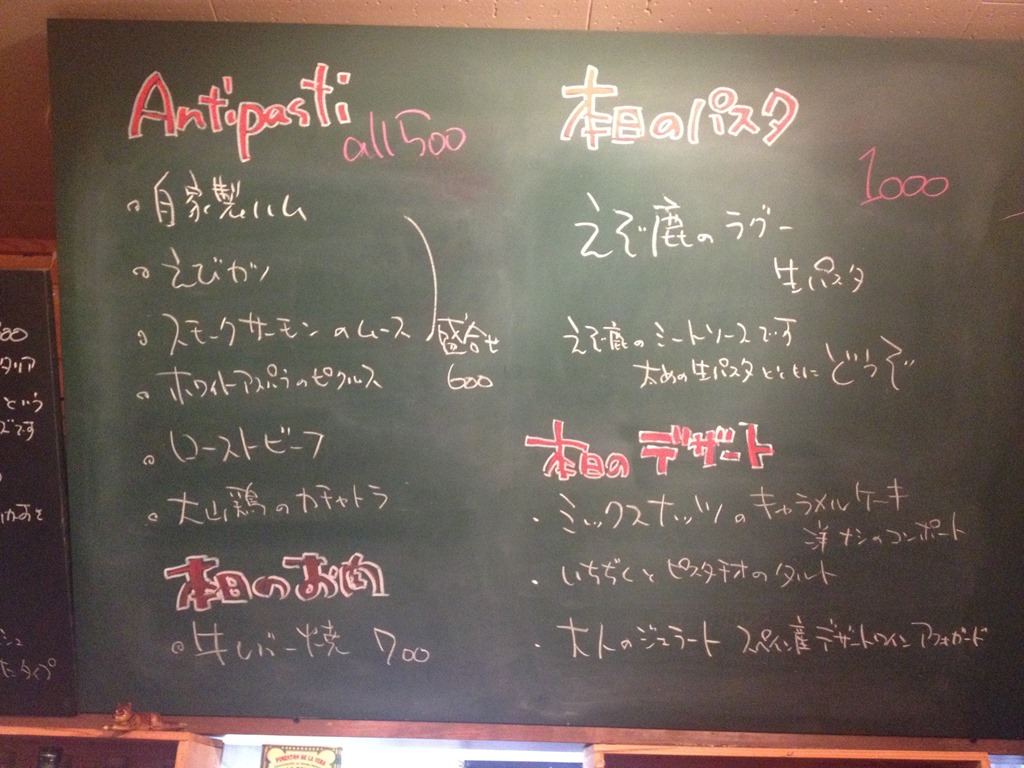 Antipasti
all 500
自家製ハム
えびカツ
スモークサーモンのムース
ホワイトアスパラのピクルス
盛合せ
600
ローストビーフ
大山鶏のカチャトラ
本日のお肉
牛レバー焼 700
本日のパスタ
1000
えぞ鹿のラグー
生パスタ
えぞ鹿のミートソースです
太めの生パスタとともにどうぞ
本日のデザート
・ミックスナッツのキャラメルケーキ
洋ナシのコンポート
・いちぢくとピスタチオのタルト
・大人のジェラート スペイン産デザートワインアフォガード
という
ズです
タイプ
FONDATION DE LA